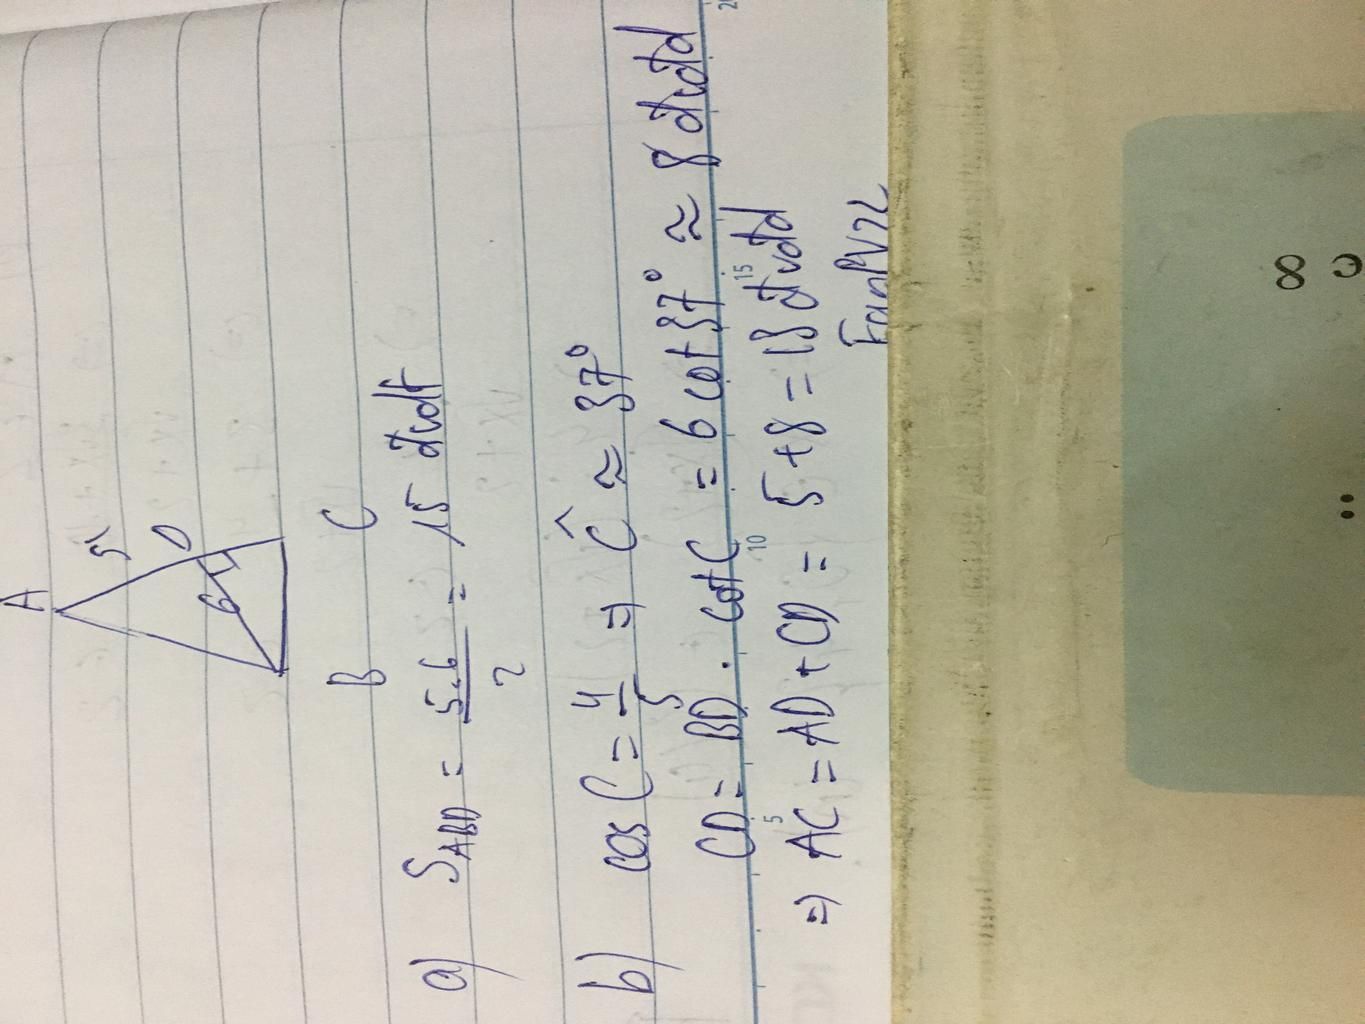 A
5
D
6
B C
a) S_ABD = 5.6/2 = 15 đvdt
b) cos C = 4/5 => Ĉ ≈ 37°
CD = BD . cot C = 6 cot 37° ≈ 8 đvđd
=> AC = AD + CD = 5 + 8 = 13 đvđd
5 10 15 20
c 8